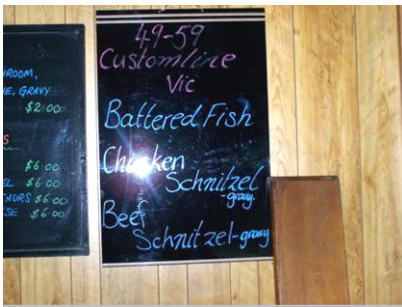 ROOM,
E, GRAVY
$2.00
S
$6.00
EL $6.00
TAURS $6.00
SE $6.00
49-59
Customline
Vic
Battered Fish
Chicken
Schnitzel
-gravy
Beef
Schnitzel-gravy